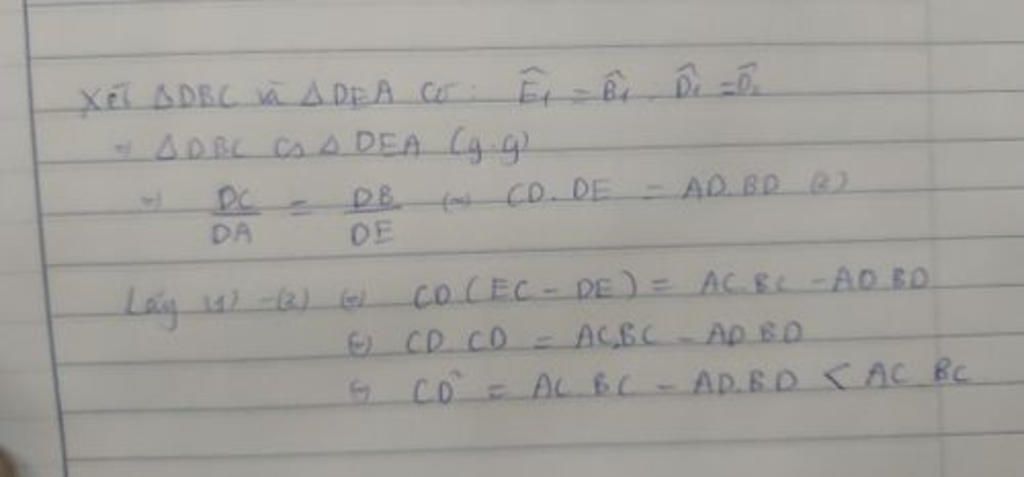 Xét ΔDBC và ΔDEA có: Ê₁ = B̂₁. D̂₁ = D̂₂
⇒ ΔDBC ∽ ΔDEA (g.g)
⇒ DC/DA = DB/DE ⇔ CD.DE = AD.BD (2)
Lấy (1) - (2) ⇔ CD(EC - DE) = AC.BC - AD.BD
⇔ CD.CD = AC.BC - AD.BD
⇔ CD² = AC.BC - AD.BD < AC.BC